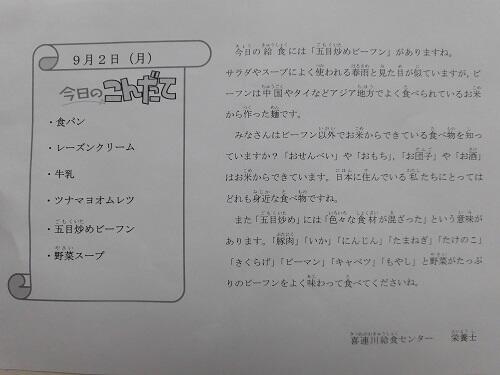 9月2日（月）
今日のこんだて
・食パン
・レーズンクリーム
・牛乳
・ツナマヨオムレツ
・五目炒めビーフン
・野菜スープ
今日の給食には「五目炒めビーフン」がありますね。
サラダやスープによく使われる春雨と見た目が似ていますが，ビ
ーフンは中国やタイなどアジア地方でよく食べられているお米
から作った麺です。
みなさんはビーフン以外でお米からできている食べ物を知っ
ていますか？「おせんべい」や「おもち」，「お団子」や「お酒」
はお米からできています。日本に住んでいる私たちにとっては
どれも身近な食べ物ですね。
また「五目炒め」には「色々な食材が混ざった」という意味が
あります。「豚肉」「いか」「にんじん」「たまねぎ」「たけのこ」
「きくらげ」「ピーマン」「キャベツ」「もやし」と野菜がたっぷ
りのビーフンをよく味わって食べてくださいね。
喜連川給食センター　栄養士